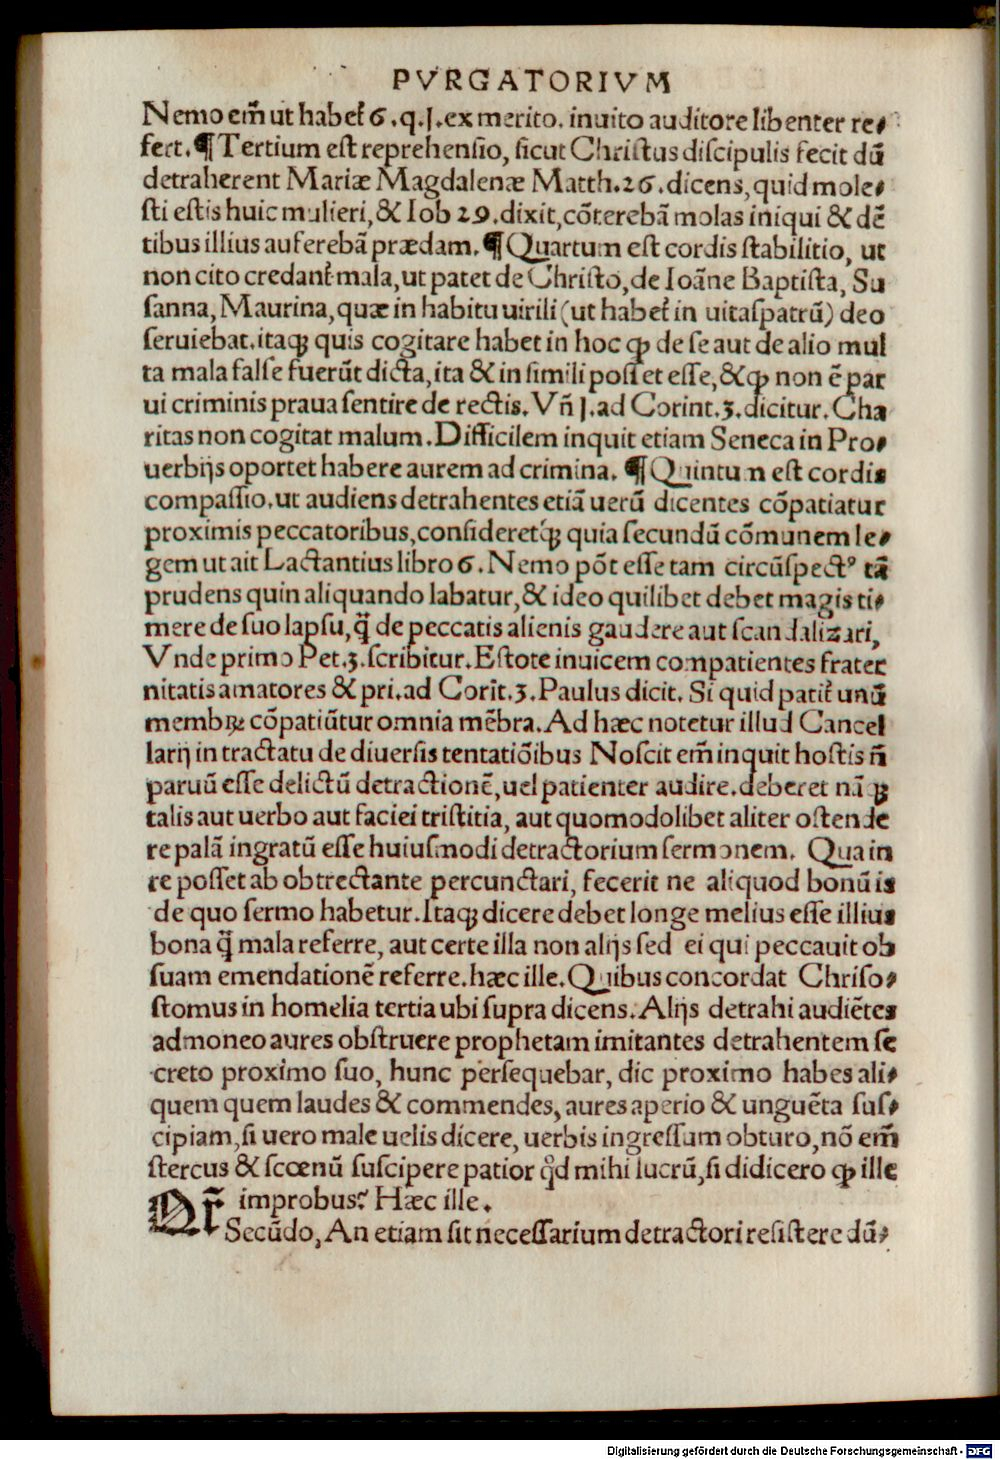 PVRGATORIVM
Nemo em̃ ut habet̃ 6.q.J.ex merito. inuito auditore libenter re⸗
fert.¶ Tertium est reprehensio, sicut Christus discipulis fecit dū
detraherent Mariæ Magdalenæ Matth.26.dicens,quid mole⸗
sti estis huic mulieri,& Iob 29.dixit,cōterebā molas iniqui & dē
tibus illius auferebā prædam.¶ Quartum est cordis stabilitio, ut
non cito credant̃ mala,ut patet de Christo,de Ioāne Baptista, Su
sanna, Maurina,quæ in habitu uirili (ut habet̃ in uitaspatrū) deo
seruiebat.itaqꝫ quis cogitare habet in hoc ꝙ de se aut de alio mul
ta mala false fuerūt dicta,ita & in simili posset esse,&ꝙ non ē par
ui criminis praua sentire de rectis. Vñ J.ad Corint.3.dicitur.Cha
ritas non cogitat malum.Difficilem inquit etiam Seneca in Pro⸗
uerbijs oportet habere aurem ad crimina. ¶ Quintum est cordis
compassio.ut audiens detrahentes etiā uerū dicentes cōpatiatur
proximis peccatoribus,consideretqꝫ quia secundū cōmunem le⸗
gem ut ait Lactantius libro 6. Nemo pōt esse tam circūspectꝰ tā
prudens quin aliquando labatur,& ideo quilibet debet magis ti⸗
mere de suo lapsu,q̃ de peccatis alienis gaudere aut scandalizari,
Vnde primo Pet.3.scribitur.Estote inuicem compatientes frater
nitatis amatores & pri.ad Corĩt.3.Paulus dicit. Si quid patit̃ unū
membꝝ cōpatiūtur omnia mēbra. Ad hæc notetur illud Cancel
larij in tractatu de diuersis tentatiōibus Noscit em̃ inquit hostis ñ
paruū esse delictū detractionē,uel patienter audire.deberet nāqꝫ
talis aut uerbo aut faciei tristitia, aut quomodolibet aliter ostende
re palā ingratū esse huiusmodi detractorium sermonem. Qua in
re posset ab obtrectante percunctari, fecerit ne aliquod bonū is
de quo sermo habetur.Itaqꝫ dicere debet longe melius esse illius
bona q̃ mala referre, aut certe illa non alijs sed ei qui peccauit ob
suam emendationē referre.hæc ille.Quibus concordat Chriso⸗
stomus in homelia tertia ubi supra dicens.Alijs detrahi audiētes
admoneo aures obstruere prophetam imitantes detrahentem se
creto proximo suo, hunc persequebar, dic proximo habes ali⸗
quem quem laudes & commendes, aures aperio & unguēta sus⸗
cipiam,si uero male uelis dicere, uerbis ingressum obturo,nō em̃
stercus & scœnū suscipere patior qd̃ mihi lucrū,si didicero ꝙ ille
improbus? Hæc ille.
Qr̃ Secūdo, An etiam sit necessarium detractori resistere dū⸗
Digitalisierung gefördert durch die Deutsche Forschungsgemeinschaft - DFG